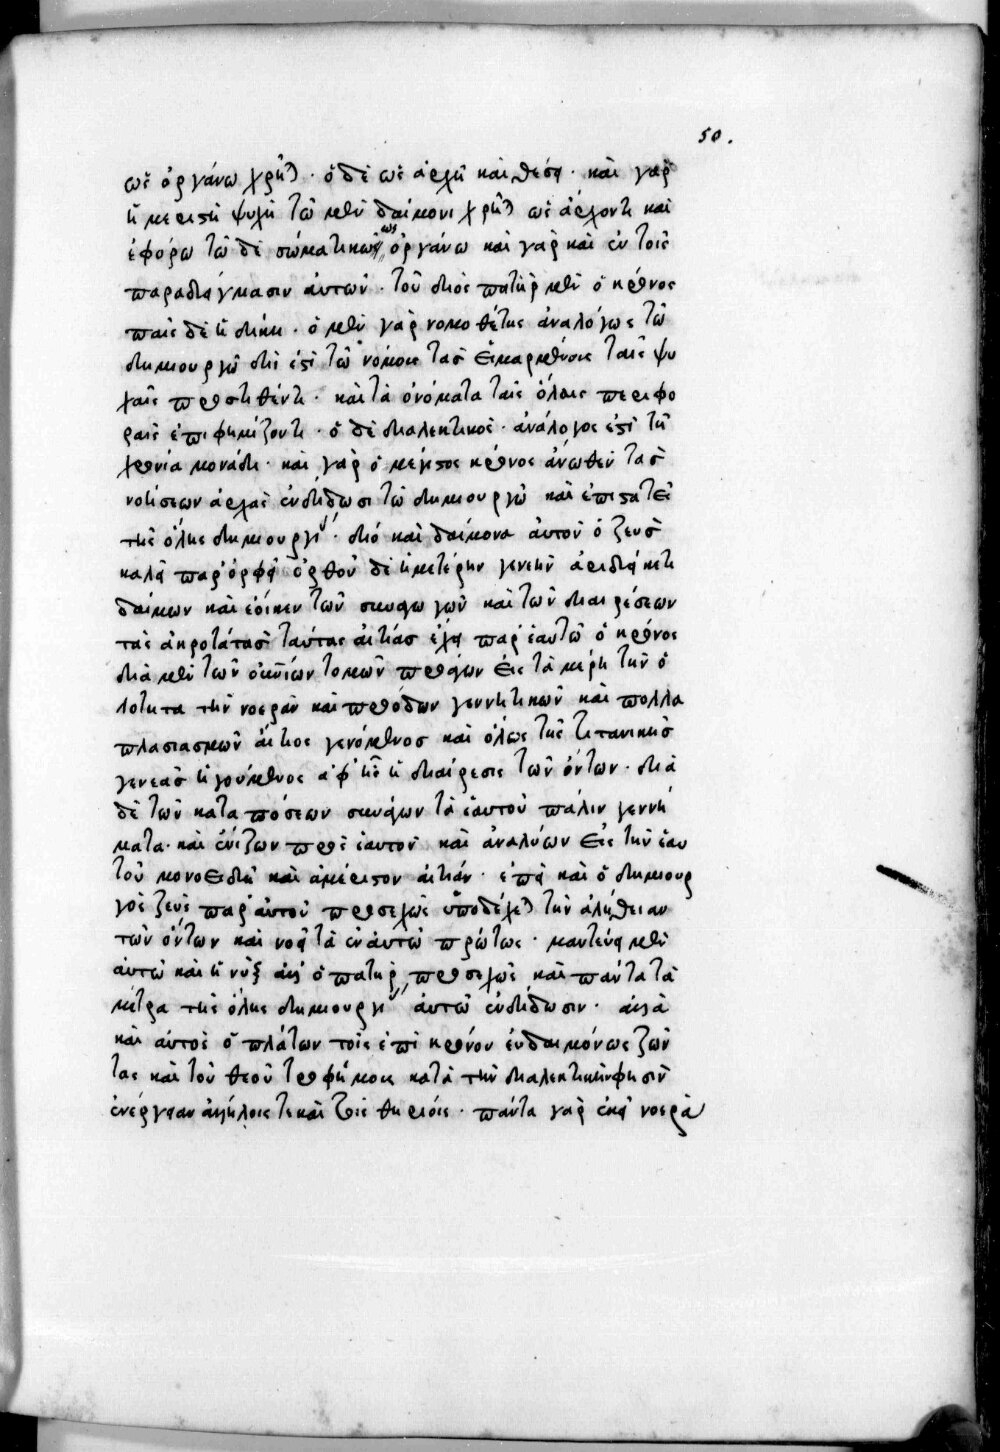 50.
ὡς ὀργάνω χρῆται · ὁ δὲ ὡς ἀρχῆ καὶ θέσει · καὶ γὰρ
ἡ μεριστὴ ψυχὴ τῶ μὲν δαίμονι χρῆται ὡς ἄρχοντι καὶ
ἐφόρω τῶ δὲ σώματι ὡς ὀργάνω καὶ γὰρ καὶ ἐν τοῖς
παραδείγμασιν αὐτῶν · τοῦ διὸς πατὴρ μὲν ὁ κρόνος
παῖς δὲ ἡ δίκη · ὁ μὲν γὰρ νομοθέτης ἀναλόγως τῶ
δημιουργῶ δὴ ἐστὶ τῶ νόμους τὰς εἱμαρμένους ταῖς ψυ
χαῖς προστιθέντι · καὶ τὰ ὀνόματα ταῖς ὅλαις περιφο
ραῖς ἐπιφημίζοντι · ὁ δὲ διαλεκτικὸς · ἀνάλογος ἐστὶ τῆ
κρονία μονάδι · καὶ γὰρ ὁ μέγιστος κρόνος ἄνωθεν τὰς
νοήσεων ἀρχὰς ἐνδίδωσι τῶ δημιουργῶ καὶ ἐπιστατεῖ
τῆς ὅλης δημιουργίας · διό καὶ δαίμονα αὐτὸν ὁ ζεὺς
καλεῖ παρ' ὀρφεῖ ὄρθου δὲ ἡμετέρην γενεὴν ἀριδείκετε
δαίμων καὶ ἔοικεν τῶν συναγωγῶν καὶ τῶν διαιρέσεων
τὰς ἀκροτάτας ταύτας αἰτίας ἔχει παρ' ἑαυτῶ ὁ κρόνος
διὰ μὲν τῶν οὐρανίων τομῶν προάγων εἰς τὰ μέρη τὴν ὁ
λότητα τὴν νοερὰν καὶ προόδων γεννητικῶν καὶ πολλα
πλασιασμῶν αἴτιος γενόμενος καὶ ὅλως τῆς τιτανικῆς
γενεᾶς ἡγούμενος ἀφ' ἧς ἡ διαίρεσις τῶν ὄντων · διὰ
δὲ τῶν καταπόσεων συνάγων τὰ ἑαυτοῦ πάλιν γεννή
ματα · καὶ ἑνίζων πρὸς ἑαυτὸν καὶ ἀναλύων εἰς τὴν ἑαυ
τοῦ μονοειδῆ καὶ ἀμέριστον αἰτίαν · ἐπεὶ καὶ ὁ δημιουρ
γὸς ζεὺς παρ' αὐτοῦ προσεχῶς ὑποδέχεται τὴν ἀλήθειαν
τῶν ὄντων καὶ νοεῖ τὰ ἐν αὐτῶ πρώτως · μαντεύει μὲν
αὐτῶ καὶ ἡ νὺξ ἀλλ' ὁ πατὴρ προσεχῶς καὶ πάντα τὰ
μέτρα τῆς ὅλης δημιουργίας αὐτῶ ἐνδίδωσιν · ἀλλὰ
καὶ αὐτὸς ὁ πλάτων τοῖς ἐπὶ κρόνου εὐδαιμόνως ζῶν
τας καὶ τοῦ θεοῦ τροφήμους κατὰ τὴν διαλεκτικὴν φησὶν
ἐνέργειαν ἀλλήλοις τε καὶ τοῖς θηρίοις · πάντα γὰρ ἐκεῖ νοερὰ